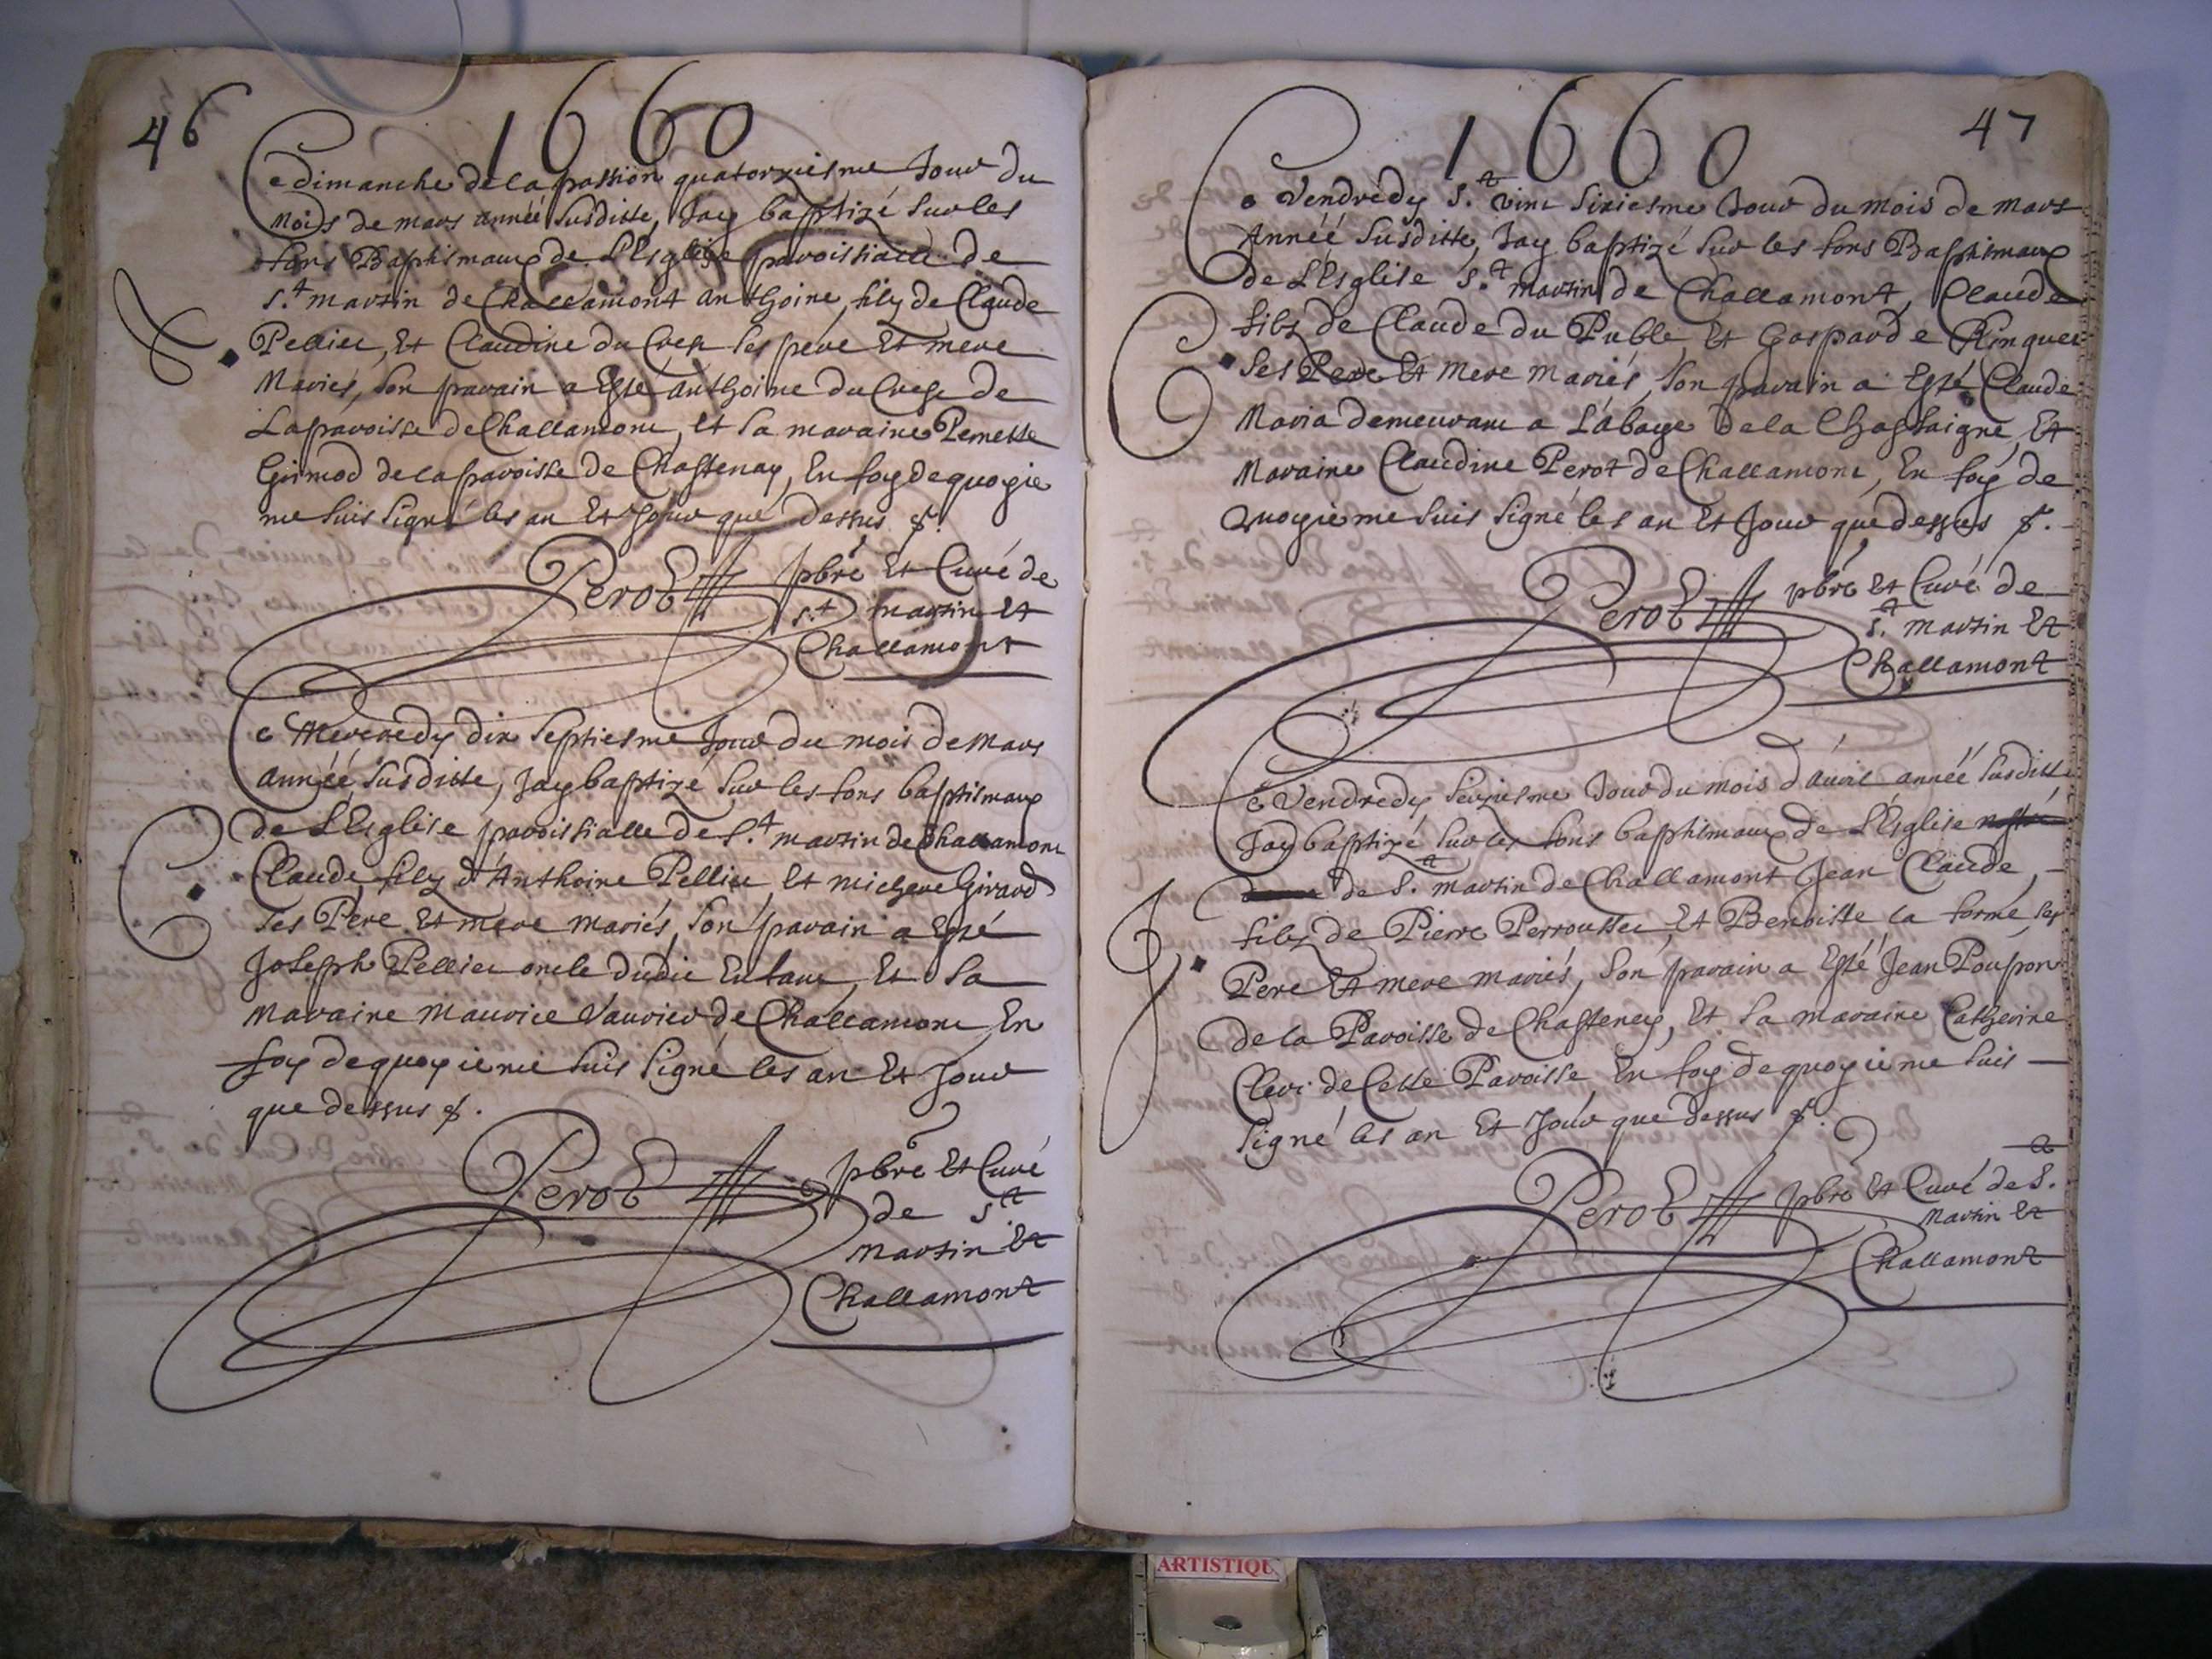 46
1660
Ce dimanche de la passion quatorziesme Jour du
Mois de mars année susditte, Jay baptizé sur les
fons Baptismaux de L'Esglise parroissialle de
S.t martin de Challamont anthoine, filz de Claude
Pellier, Et Claudine du Cren ses pere Et mere
Mariés, son parain a Esté anthoine du
La paroisse de Challamont, et sa maraine Pernette
Girmod de la paroisse de Chastenay, En foy de quoy je
me suis signé les an Et Jour que dessus &.
Perot pbre Et Curé de
S.t martin Et
Challamont
Ce Mercredy dix septiesme Jour du mois de Mars
année susditte, Jay baptizé sur les fons baptismaux
de L'Esglise paroissialle de S.t martin de Challamont
Claude, filz d'Anthoine Pellier Et Michere Girard
ses Pere Et mere mariés, son parain a Esté
Joseph Pellier oncle dudit Enfant, Et sa
Maraine Maurice Vaurier de Challamont En
foy de quoy je me suis signé les an Et Jour
que dessus &.
Perot pbre Et Curé
de S.t
Martin Et
Challamont
47
1660
Ce Vendredy S.t vint sixiesme Jour du mois de Mars
Année susditte, Jay baptizé sur les fons Baptismaux
de L'Esglise S.t martin de Challamont, Claude
filz de Claude du Puble Et Gaspard e Ringuet
ses Pere Et Mere mariés, son parain a Esté Claude
Maria demeurant a L'abaye de la Chastaigne, Et
Maraine Claudine Perot de Challamont, En foy de
Quoy je me suis signé les an Et Jour que dessus &.
Perot pbre Et Curé de
S.t martin Et
Challamont
Ce Vendredy seiziesme Jour du mois d'avril année susditte
Jay baptizé sur les fons baptismaux de L'Esglise
de S.t martin de Challamont Jean Claude,
filz de Pierre Perrousset, Et Benoitte la forme, ses
Pere Et mere mariés, son parain a Esté Jean Poupon
de la Paroisse de Chastenay, Et sa maraine Catherine
Cleri de Cette Paroisse En foy de quoy je me suis
signé les an Et Jour que dessus &.
Perot pbre Et Curé de S.t
Martin Et
Challamont
ARTISTIQU